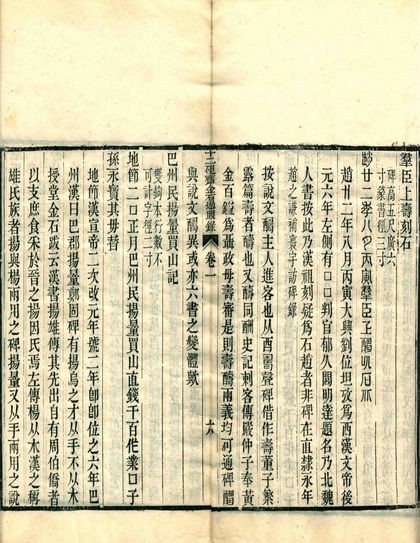 羣臣上壽刻石
碑高五尺廣六
寸篆書徑三寸
趙廿二年八月丙寅羣臣上醻此石北
趙廿二年八月丙寅大興劉位坦攷爲西漢文帝後
元六年左側有口口判官郁久閭明達題名乃北魏
人書按此乃漢祖刻疑爲石趙者非碑在直隷永年
趙之謙補寰宇訪碑錄
按說文醻主人進客也从酉𠷎聲碑借作壽董子繁
露篇壽者醻也又醻同酬史記刺客傳嚴仲子奉黃
金百鎰爲聶政母壽審是則壽醻兩義均可通碑醻
十二硯齋金石過眼錄 卷一 十六
與說文醻異或亦六書之變體歟
巴州民揚量買山記
雙鉤本行數不
可計字徑二寸
地節二口正月巴州民揚量買山直錢千百作業口子
孫永寶其毋替
地節漢宣帝二次改元年號二年卽卽位之六年巴
州漢曰巴郡揚量鄭固碑有揚烏之才从手不从木
授堂金石跋云漢書揚雄傳其先出自有周伯僑者
以支庶食采於晉之揚因氏焉左傳楊从木漢之稱
雄氏族者揚與楊兩用之碑揚量又从手兩用之說